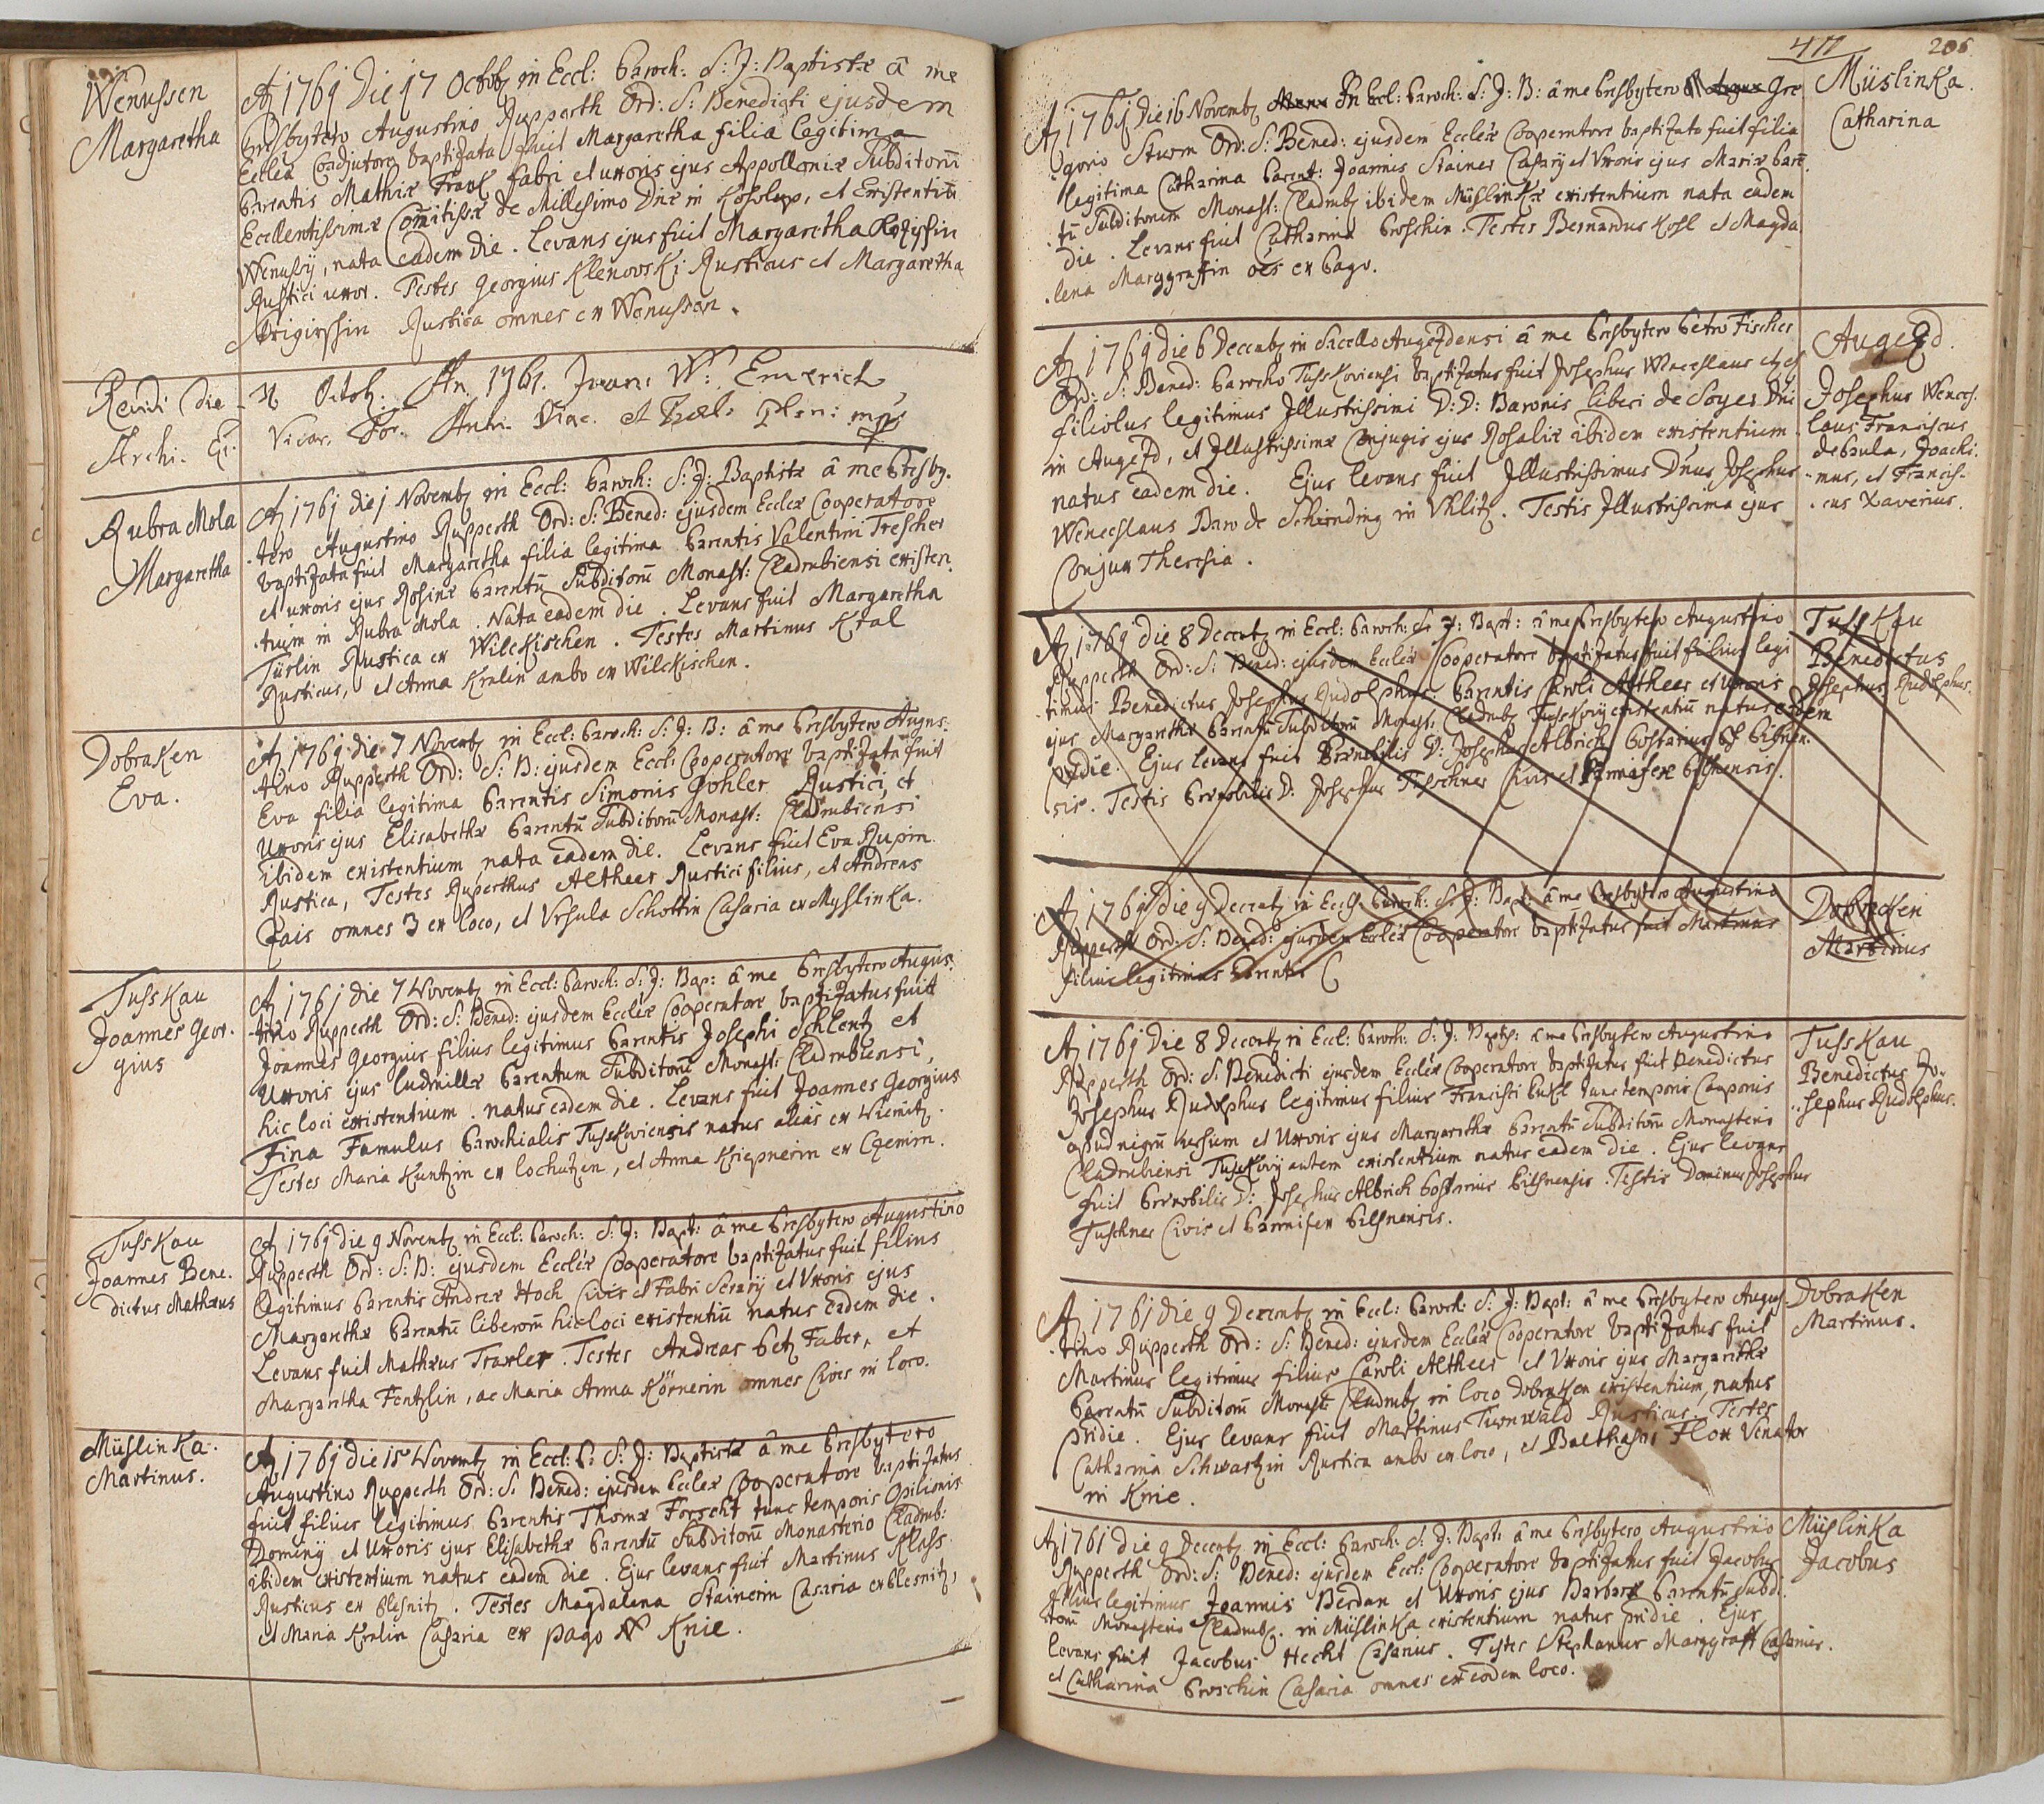 Wenussen
Margaretha
A 1761 Die 17 Octob in Eccl: Paroch: S: J: Baptistæ â me
Presbytero Augustino Rupperth Ord: S: Benedicti ejusdem
Eccliæ Coadjutore baptizata fuit Margaretha filia legitima
Parentis Mathiæ Fabri et uxoris ejus Appolloniæ Subditorū
Excellentissimæ Comitissæ de Millesimo Dnæ in Kosolup, et Existentiū
Wenussij, nata eadem die. Levans ejus fuit Margaretha
Rustici uxor. Testes Georgius Klenovski Rusticus et Margaretha
Rustica omnes ex Wenussen.
Revidi die Octob: An. 1761. Joan: W: Emerich
Archi. Vicar. For. mps
Rubra Mola
Margaretha
A 1761 die 1 Novemb in Eccl: Paroch: S: J: Baptistæ â me Presby-
-tero Augustino Rupperth Ord: S: Bened: ejusdem Eccliæ Cooperatore
baptizata fuit Margaretha filia legitima Parentis Valentini Trescher
et uxoris ejus Rosinæ Parentū Subditorū Monast: Cladrubiensi existen-
-tium in Rubra Mola. Nata eadem die. Levans fuit Margaretha
Türlin Rustica ex Wilckischen. Testes Martinus Kral
Rusticus, et Anna Kralin ambo ex Wilckischen.
Dobraken
Eva.
A 1761 die 7 Novemb in Eccl: Paroch: S: J: B: â me Presbytero Augus-
-tino Rupperth Ord: S: B: ejusdem Eccl: Cooperatore baptizata fuit
Eva filia legitima Parentis Simonis Gohler Rustici, et
Uxoris ejus Elisabethæ Parentū Subditorū Monast: Cladrubiensi
ibidem existentium nata eadem die. Levans fuit Eva Rupin
Rustica, Testes Rupertus Altheer Rustici filius, et Andreas
Zais omnes 3 ex loco, et Ursula Schottin Casaria ex Myslinka.
Tusskau
Joannes Geor-
gius
A 1761 die 7 Novemb in Eccl: Paroch: S: J: Bap: â me Presbytero Augus-
-tino Rupperth Ord: S: Bened: ejusdem Eccliæ Cooperatore baptizatus fuit
Joannes Georgius filius legitimus Parentis Josephi Schlentz et
Uxoris ejus Ludmillæ Parentum Subditorū Monast: Cladrubiensi,
hic loci existentium. natus eadem die. Levans fuit Joannes Georgius
Fina Famulus Parochialis Tusskoviensis natus alias ex
Testes Maria Kuntzin ex Lochutzen, et Anna Kriepnerin ex Czemin.
Tusskau
Joannes Bene-
dictus Mathæus
A 1761 die 9 Novemb in Eccl: Paroch: S: J: Bapt: â me Presbytero Augustino
Rupperth Ord: S: B: ejusdem Eccliæ Cooperatore baptizatus fuit filius
legitimus Parentis Andreæ Hoch Civis et Fabri Serarij et Uxoris ejus
Margarethæ Parentū liberorū hic loci existentiū natus eadem die.
Levans fuit Mathæus Traxler. Testes Andreas Petz Faber, et
Margaretha Fentzlin, ac Maria Anna Körnerin omnes Cives in loco.
Müslinka.
Martinus.
A 1761 die 15 Novemb in Eccl: P: S: J: Baptistæ â me Presbytero
Augustino Rupperth Ord: S: Bened: ejusdem Eccliæ Cooperatore baptizatus
fuit filius legitimus Parentis Thomæ Forscht tunc temporis Opilionis
Dominij et Uxoris ejus Elisabethæ Parentū Subditorū Monasterio Cladrub:
ibidem existentium natus eadem die. Ejus levans fuit Martinus Klass
Rusticus ex Plesnitz. Testes Magdalena Stainerin Casaria ex Plesnitz,
et Maria Kralin Casaria ex pago Knie.
411 206
A 1761 die 16 Novemb In Eccl: Paroch: S: J: B: â me Presbytero Gre
gorio Sturm Ord: S: Bened: ejusdem Eccliæ Cooperatore baptizata fuit filia
legitima Catharina Parent: Joannis Stainer Casarij et Uxoris ejus Mariæ Paren
-tū Subditorum Monast: Cladrub ibidem Müslinkæ existentium nata eadem
die. Levans fuit Catharina Proschin. Testes Bernardus Kohl et Magda
-lena Marggraffin oēs ex Pago.
Müslinka.
Catharina
A 1761 die 6 Decemb in Sacello Augezdensi â me Presbytero Petro Fischer
Ord: S: Bened: Parocho Tusskoviensi baptizatus fuit Josephus Wenceslaus
filiolus legitimus Illustrissimi D: D: Baronis liberi de Soyer Dni
in Augezd, et Illustrissimæ Conjugis ejus Rosaliæ ibidem existentium
natus eadem die. Ejus levans fuit Illustrissimus Dnus Josephus
Wenceslaus Baro de Schirnding in Uhlitz. Testis Illustrissima ejus
Conjux Theresia.
Augezd.
Josephus Wences-
laus Franciscus
de Paula, Joachi-
-mus, et Francis-
-cus Xaverius.
A 1761 die 8 Decemb in Eccl: Paroch: S: J: Bapt: â me Presbytero Augustino
Rupperth Ord: S: Bened: ejusdem Eccliæ Cooperatore baptizatus fuit filius legi
timus Benedictus Josephus Rudolphus Parentis Caroli Altheer et uxoris
ejus Margarethæ Parentū Subditorū Monast: Cladrub Tusskovij existentiū natus
die. Ejus levans fuit Prænobilis D: Josephus Albrich Postarius Pilsnen-
sis. Testis Prænobilis D: Josephus Tuschner Civis et Pannifex Pilsnensis.
Tusskau
Benedictus
Josephus Rudolphus.
A 1761 die 9 Decemb in Eccl: Paroch: S: J: Bapt: â me Presbytero Augustino
Rupperth Ord: S: Bened: ejusdem Eccliæ Cooperatore baptizatus fuit Martinus
filius legitimus Parentis C
Dobraken
Martinus
A 1761 Die 8 Decemb in Eccl: Paroch: S: J: Baptis: a me Presbytero Augustino
Rupperth Ord: S: Benedicti ejusdem Eccliæ Cooperatore baptizatus fuit Benedictus
Josephus Rudolphus legitimus filius Francisci tunc temporis Cauponis
apud nigrū ursum et Uxoris ejus Margarethæ Parentū Subditorū Monasterio
Cladrubiensi Tusskovij autem existentium natus eadem die. Ejus levans
fuit Prænobilis D: Josephus Albrich Postarius Pilsnensis. Testis Dominus Josephus
Tuschner Civis et Pannifex Pilsnensis.
Tusskau
Benedictus Jo-
-sephus Rudolphus.
A 1761 die 9 Decemb in Eccl: Paroch: S: J: Bapt: â me Presbytero Augus-
-tino Rupperth Ord: S: Bened: ejusdem Eccliæ Cooperatore baptizatus fuit
Martinus legitimus filius Caroli Altheer et Uxoris ejus Margarethæ
Parentū Subditorū Monast: Cladrub in loco Dobraken existentium, natus
pridie. Ejus levans fuit Martinus Turnwald Rusticus. Testes
Catharina Schwartzin Rustica ambo ex loco, et Balthasar Flox Venator
in Knie.
Dobraken
Martinus.
A 1761 die 9 Decemb in Eccl: Paroch: S: J: Bapt: â me Presbytero Augustino
Rupperth Ord: S: Bened: ejusdem Eccl: Cooperatore baptizatus fuit Jacobus
filius legitimus Joannis Berdan et Uxoris ejus Barbaræ Parentū Subdi-
torū Monasterio Cladrub. in Müslinka existentium natus pridie. Ejus
levans fuit Jacobus Hecht Casarius. Testes Stephanus Marggraff Casarius.
et Catharina Proschin Casaria omnes ex eodem loco.
Müslinka
Jacobus